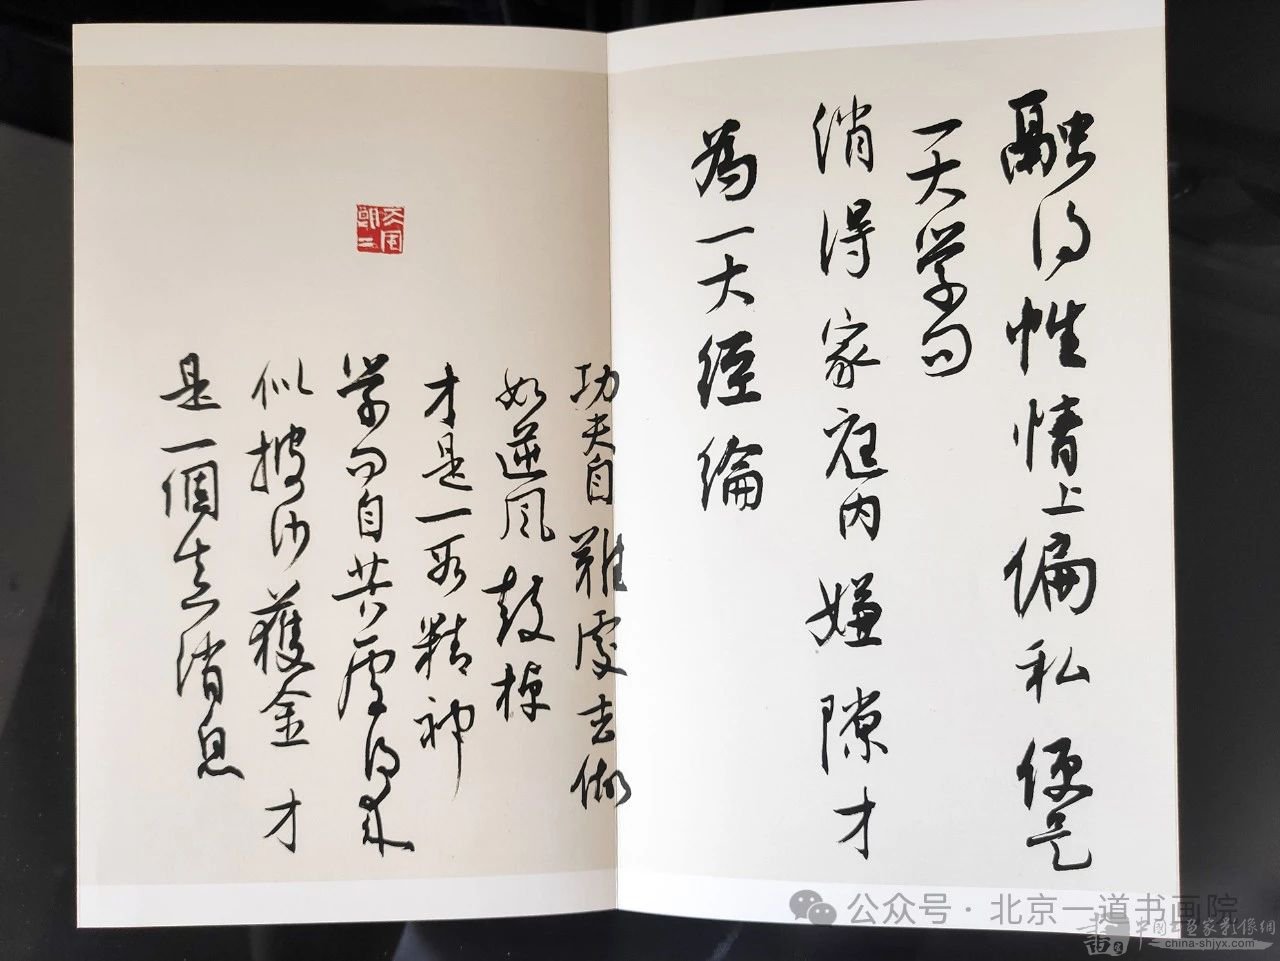 融得性情上偏私便是
一大學问
消得家庭内嫌隙才
為一大經綸
功夫自難處去做
如逆風鼓棹
才是一段精神
學问自苦處得来
似披沙獲金才
是一個真消息
公众号·北京一道书画院
中國書畫家影像網
china-shjyx.com